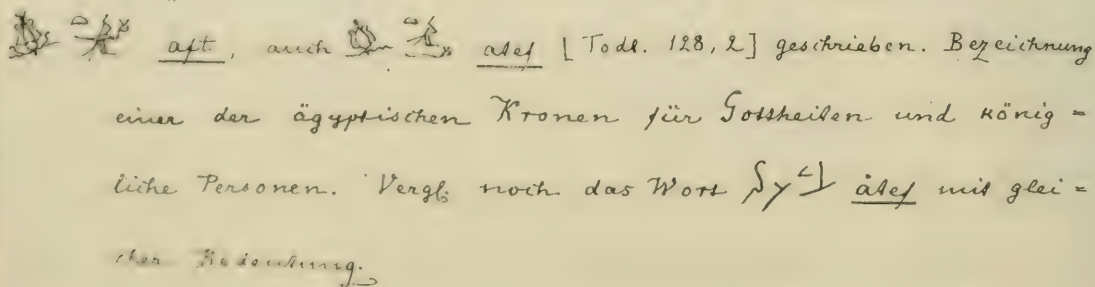 aft, auch atef [Todt. 128, 2] geschrieben. Bezeichnung
einer der ägyptischen Kronen für Gottheiten und könig=
liche Personen. Vergl. noch das Wort åtef mit glei=
cher Bedeutung.